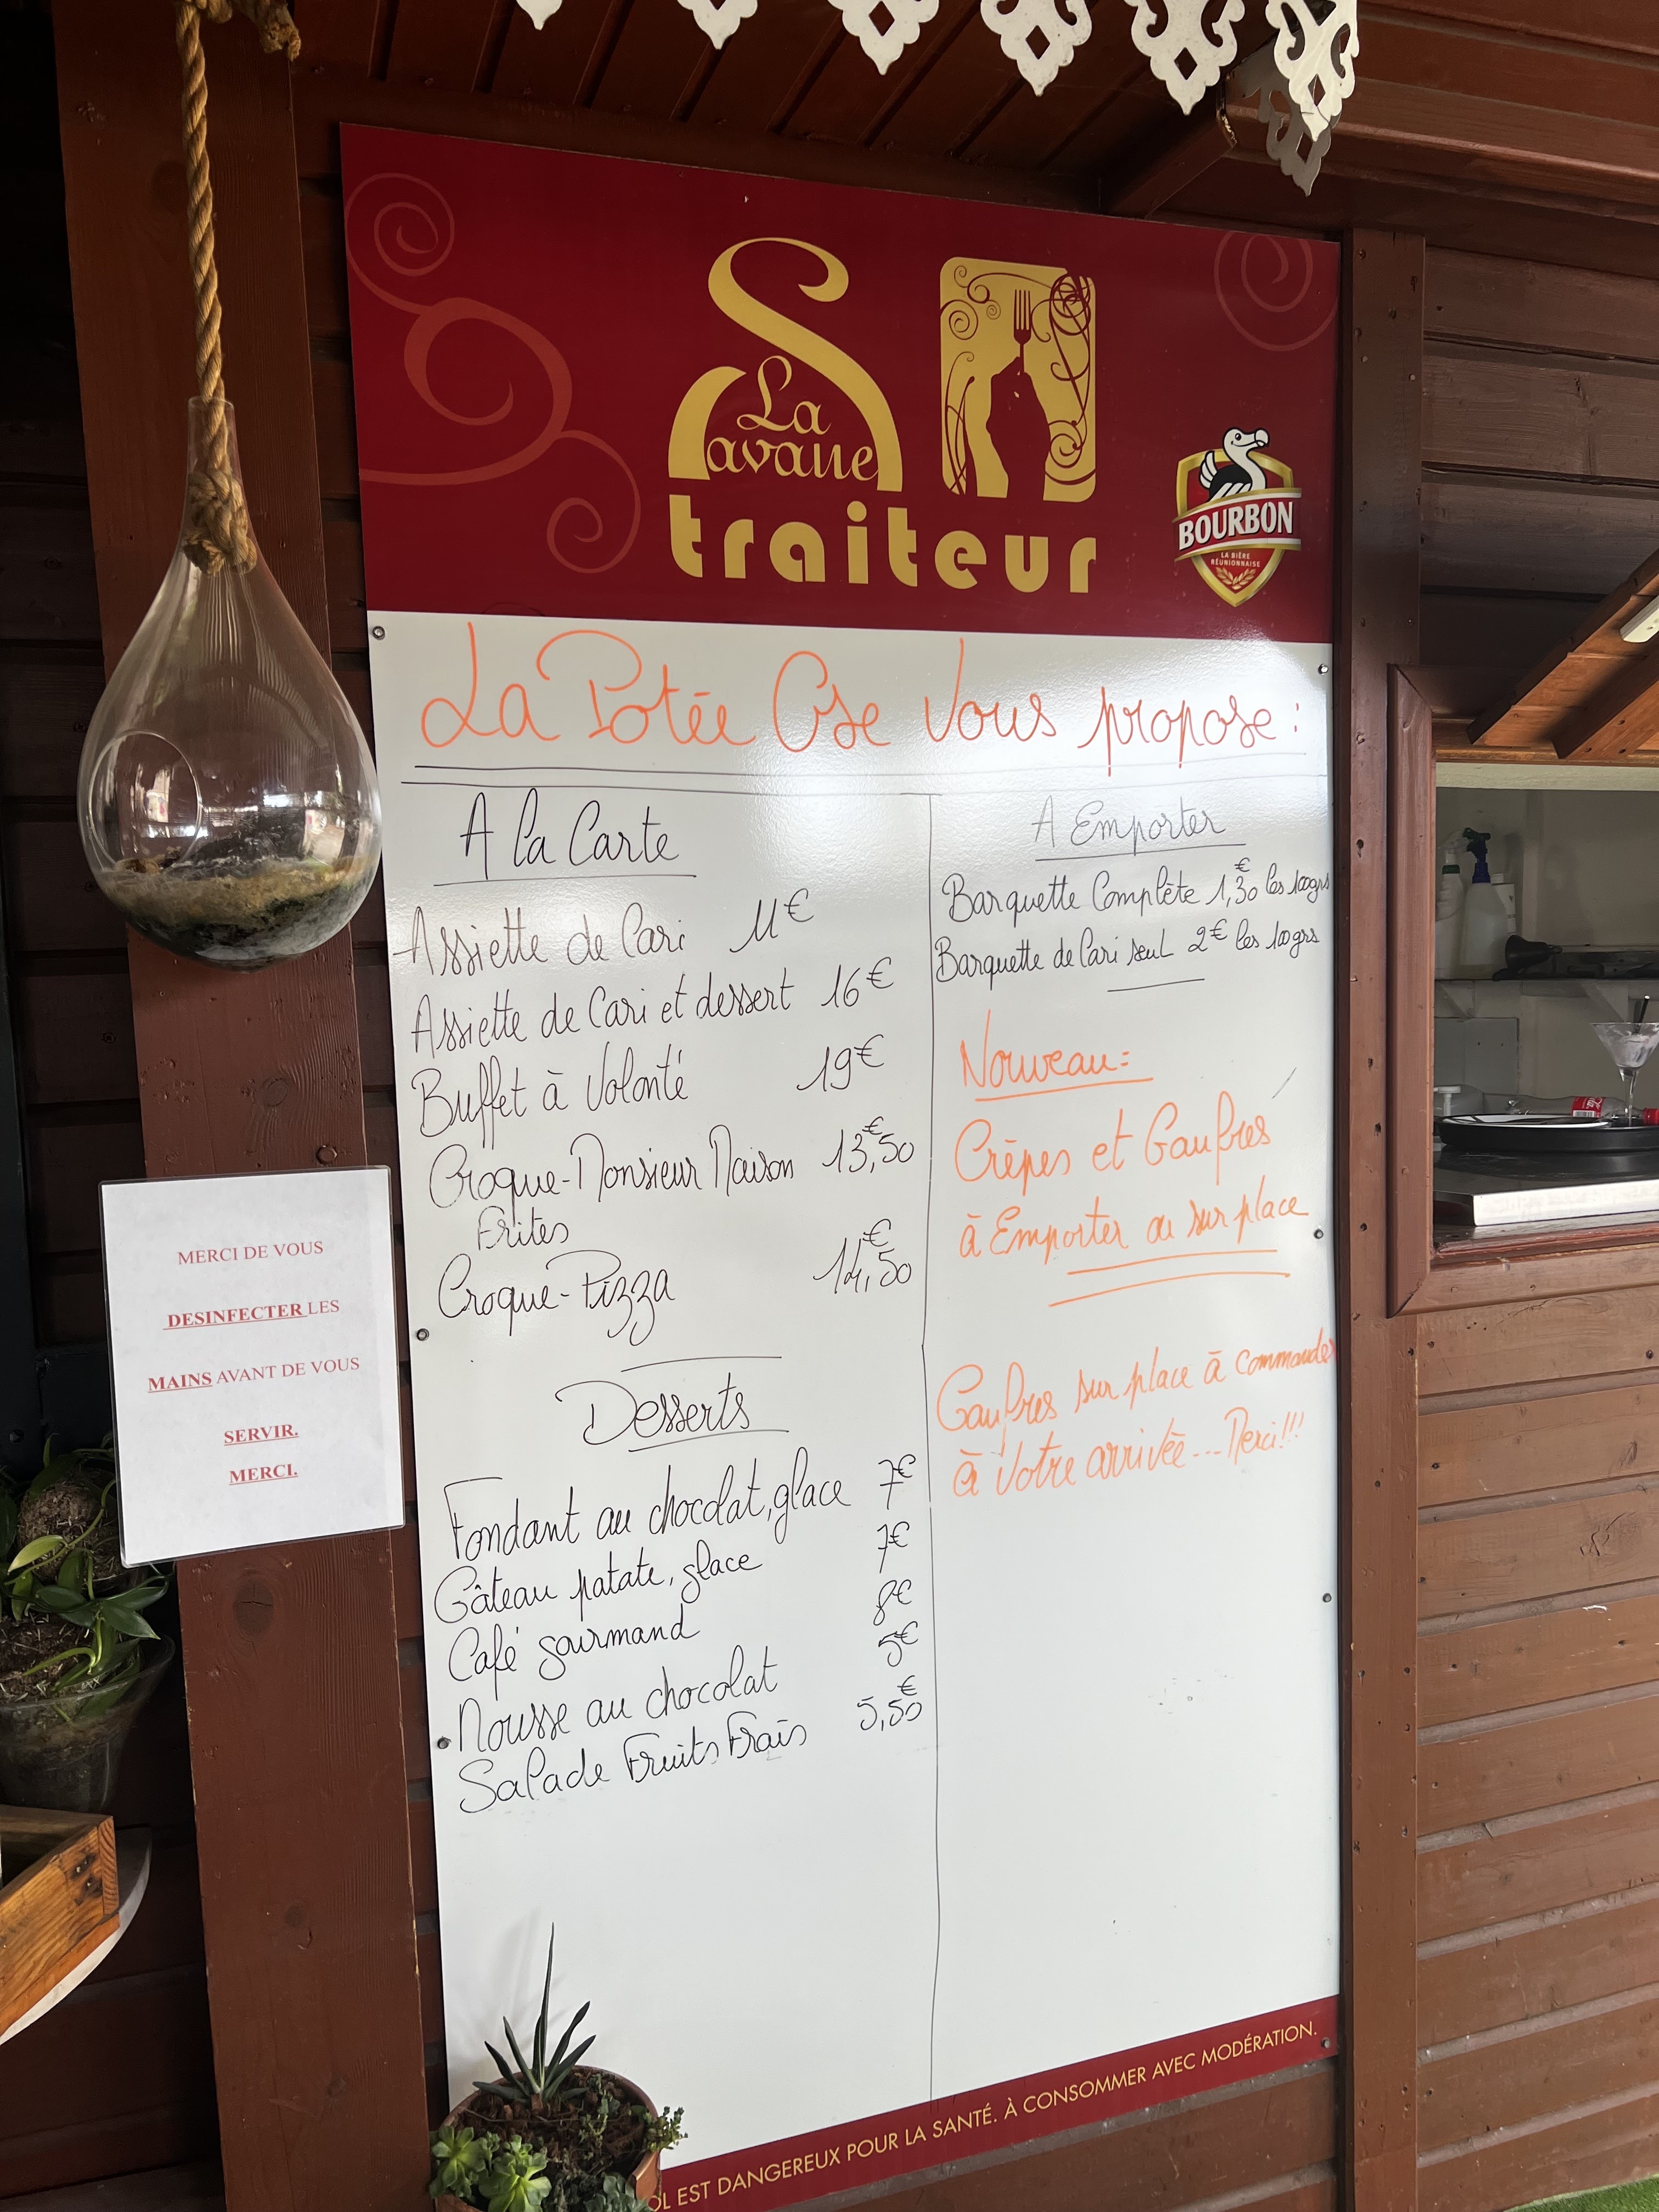 La Savane
traiteur
BOURBON
LA BIÈRE
RÉUNIONNAISE
La Potée Ose Vous propose :
A la Carte
Assiette de Cari 11€
Assiette de Cari et dessert 16€
Buffet à Volonté 19€
Croque-Monsieur Maison 13,€50
Frites
Croque-Pizza 14,€50
Desserts
Fondant au chocolat, glace 7€
Gâteau patate, glace 7€
Café gourmand 8€
Mousse au chocolat 5€
Salade Fruits Frais 5,50€
A Emporter
Barquette Complète 1,€30 les 100grs
Barquette de Cari seul 2€ les 100grs
Nouveau:
Crêpes et Gaufres
à Emporter ou sur place
Gaufres sur place à commander
à Votre arrivée... Merci!!!
MERCI DE VOUS
DESINFECTER LES
MAINS AVANT DE VOUS
SERVIR.
MERCI.
EST DANGEREUX POUR LA SANTÉ. À CONSOMMER AVEC MODÉRATION.